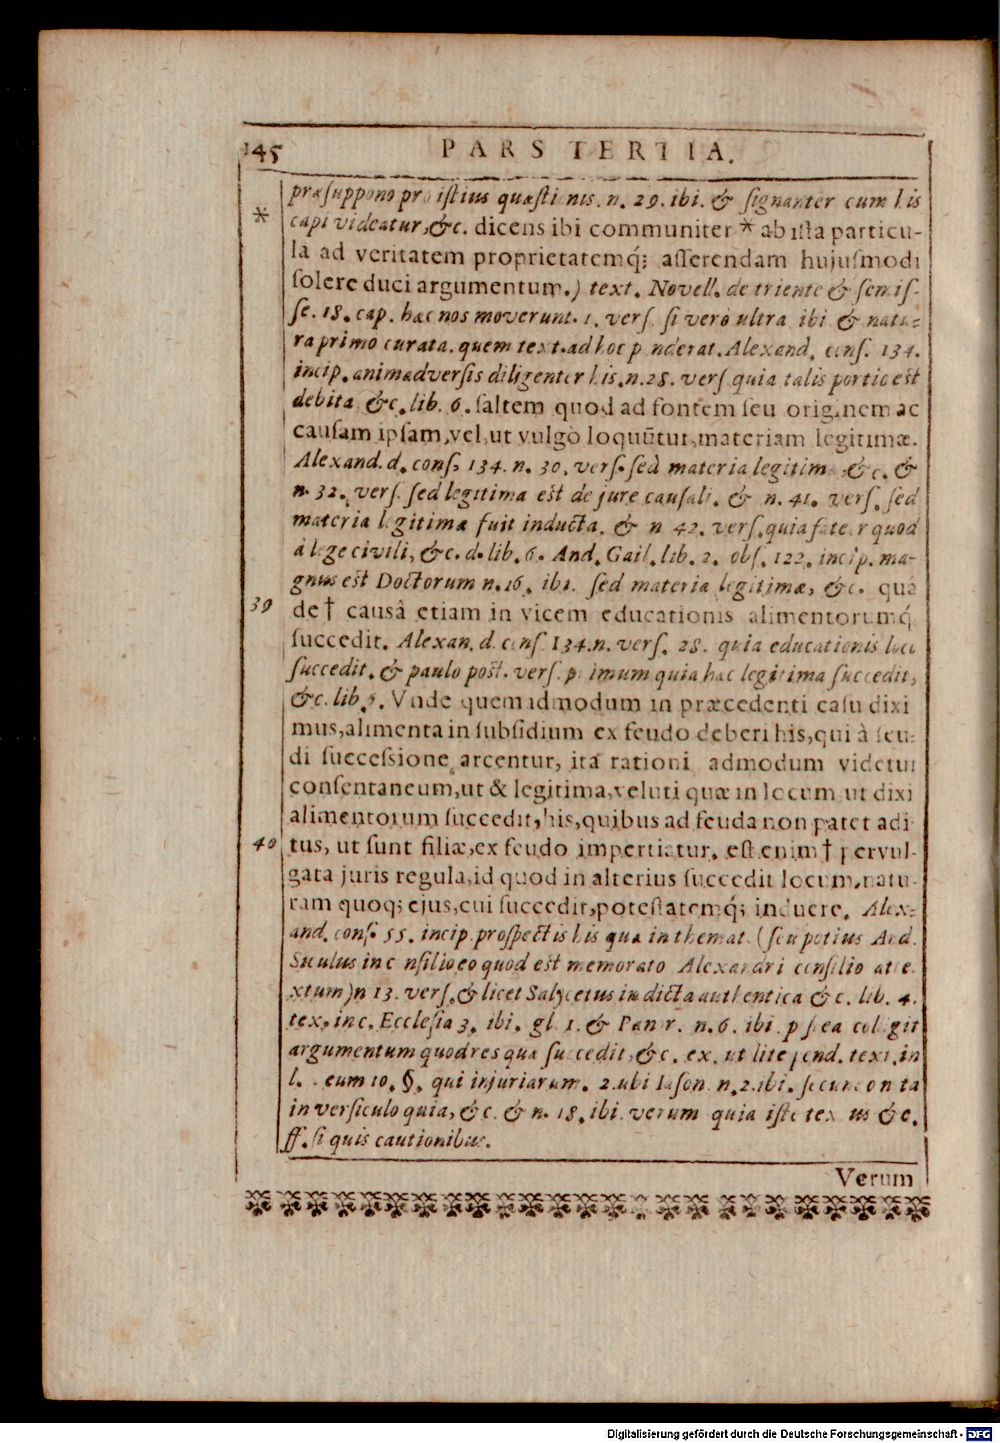 145 PARS TERTIA.
præsuppono pro istius quæsti nis. n. 29. ibi. & signanter cum his
* capi videatur, &c. dicens ibi communiter * ab ista particu-
la ad veritatem proprietatemq́; asserendam hujusmodi
solere duci argumentum.) text. Novell. de triente & semis-
se. 18. cap. hac nos moverunt. 1. vers. si verò ultra ibi & natu-
ra primo curata. quem text. ad hoc p nderat. Alexand. cons. 134.
incip. animadversis diligenter his. n. 28. vers. quia talis portio est
debita, &c. lib. 6. saltem quod ad fontem seu originem ac
causam ipsam, vel, ut vulgò loquūtur, materiam legitimæ.
Alexand. d. cons. 134. n. 30. vers. sed materia legitimæ, &c. &
n. 32. vers. sed legitima est de jure causali. & n. 41. vers. sed
materia legitimæ fuit inducta. & n 42. vers. quia fateor quod
à lege civili, &c. d. lib. 6. And. Gail. lib. 2. obs. 122. incip. ma-
gnus est Doctorum n. 16. ibi. sed materia legitimæ, &c. quâ
39 de † causâ etiam in vicem educationis alimentorumq́
succedit. Alexan. d. cons. 134. n. vers. 28. quia educationis loco
succedit. & paulo post. vers. primum quia hac legitima succedit,
&c. lib. Unde quem admodum in præcedenti casu dixi
mus, alimenta in subsidium ex feudo deberi his, qui à feu-
di successione arcentur, ita rationi admodum videtur
consentaneum, ut & legitima, veluti quæ in locum ut dixi
alimentorum succedit, his, quibus ad feuda non patet adi
40 tus, ut sunt filiæ, ex feudo impertiatur. est enim † pervul-
gata juris regula, id quod in alterius succedit locum, natu-
ram quoq; ejus, cui succedit, potestatemq́; induere. Alex-
and. cons. 55. incip. prospectis his qua in themat. (seu potius And.
Siculus in c nsilio eo quod est memorato Alexandri consilio atte
xtum) n 13. vers. & licet Salycetus in dicta authentica &c. lib. 4.
tex. in c. Ecclesia 3. ibi. gl. 1. & Panor. n. 6. ibi p ea colligit
argumentum quod res qua succedit, &c. ex. ut lite pend. text. in
l. eum 10. §. qui injuriarum. 2. ubi Iason. n. 2. ibi. secundo n ta
in versiculo quia, &c. & n. 18. ibi. verum quia iste tex us &c.
ff. si quis cautionibus.
Verum
Digitalisierung gefördert durch die Deutsche Forschungsgemeinschaft - DFG